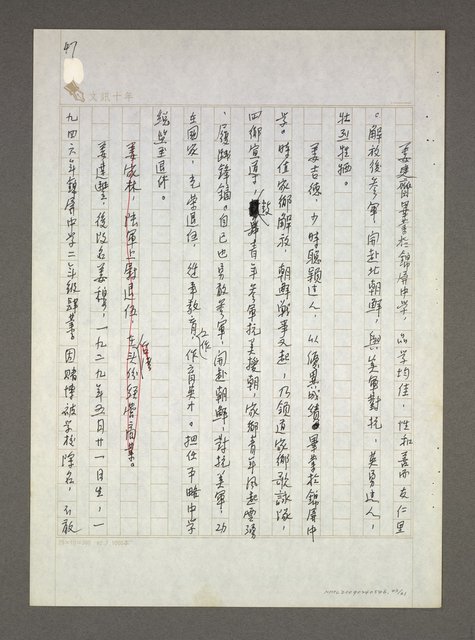 47
文訊十年
姜建爵畢業於錦屏中學，品學均佳，性和善而友仁里
。解放後參軍，開赴北朝鮮，與美軍對抗，英勇過人，
壯烈犧牲。
姜吉德，少時聰穎過人，以優異成績畢業於錦屏中
學。時值家鄉解放，朝鮮戰事又起，乃領道家鄉歌詠隊，
四鄉宣導，鼓舞青年參軍抗美援朝，家鄉青年風起雲湧
，頭踏鋒鏑。自己也勇敢參軍，開赴朝鮮，對抗美軍，功
在國家，光榮退伍，從事教育工作，作育英才。担任平略中学
總監至退休。
姜家林，陸軍上尉退伍，在头份經營商業。
任清
姜建豐，後改名姜穆，一九二九年五月廿一日生，一
九四六年錦屏中學二年级肄業，因賭博被学校除名，
25×12=300